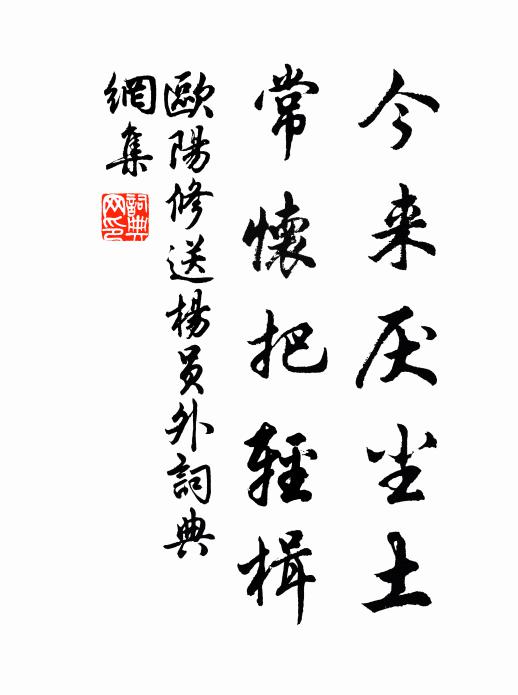 今来厌尘土
常懷把輕楫
歐陽修送楊員外詞典
網集
詞典網印